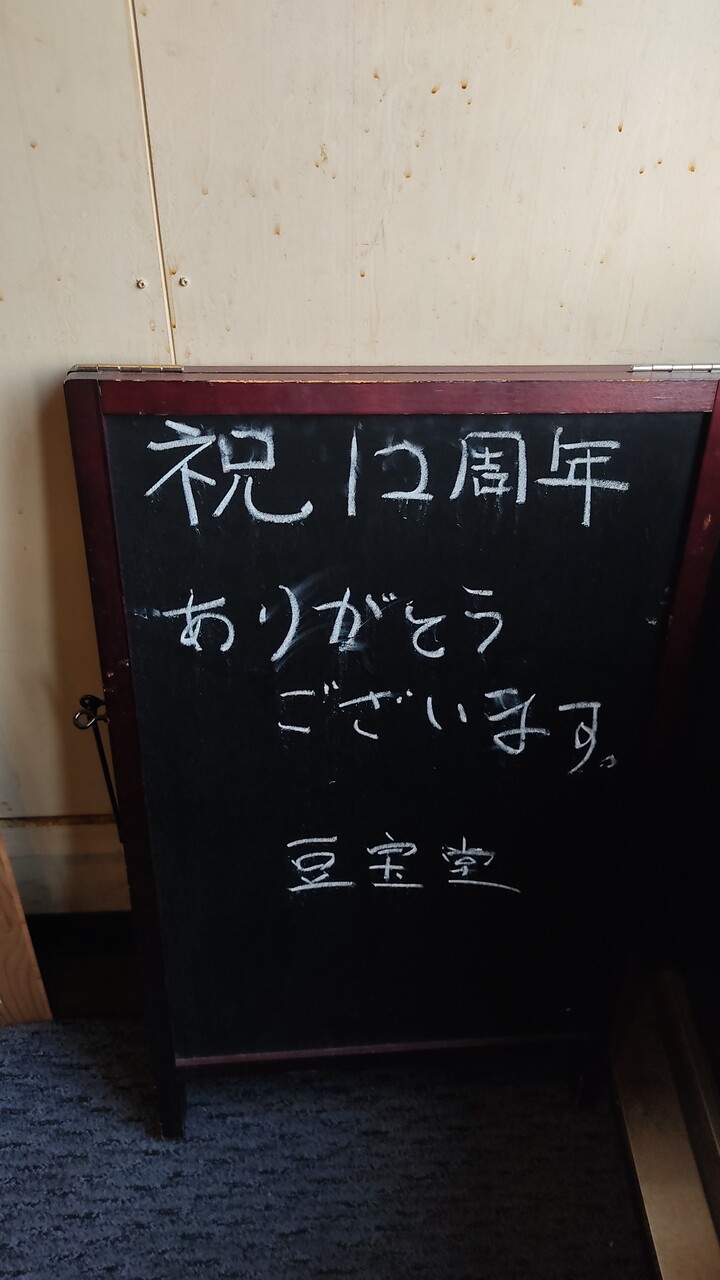 祝12周年
ありがとう
ございます。
豆宝堂